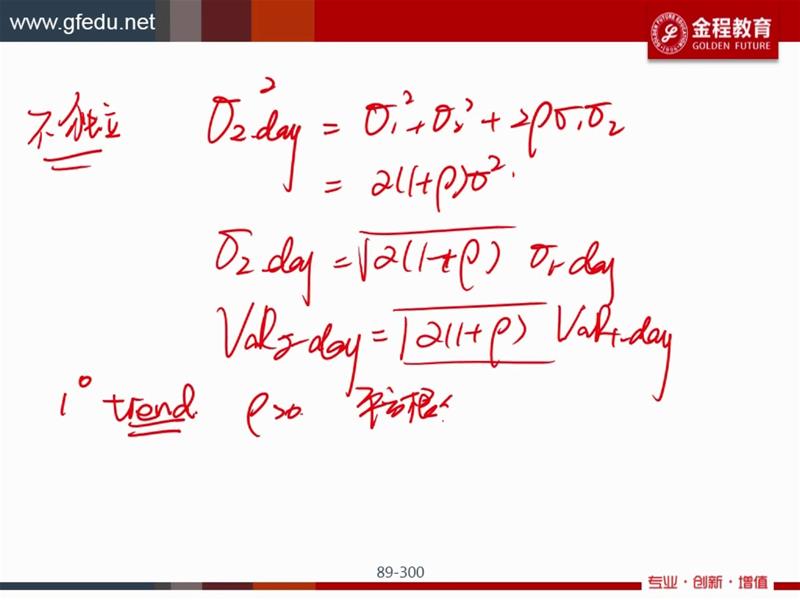 www.gfedu.net
金程教育
GOLDEN FUTURE
不独立 σ²₂₋day = σ₁² + σ₂² + 2ρσ₁σ₂
= 2(1+ρ)σ².
σ₂₋day = √2(1+ρ) σ₁₋day
VaR₂₋day = √2(1+ρ) VaR₁₋day
1° trend. ρ>0. 平方根
89-300
专业·创新·增值